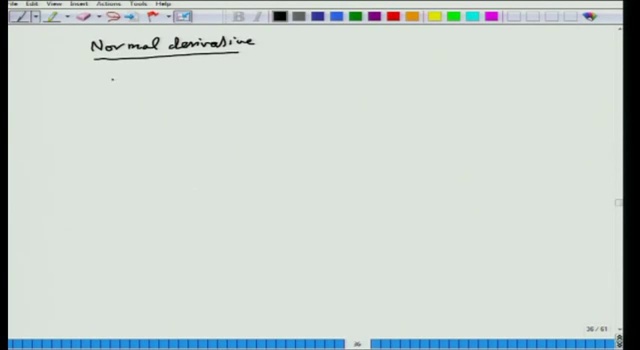 File Edit View Insert Actions Tools Help
Normal derivative
26 / 61